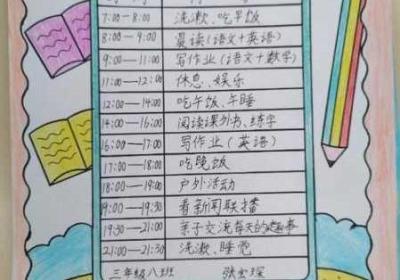 7:00—8:00 洗漱、吃早饭
8:00—9:00 晨读(语文+英语)
9:00—11:00 写作业(语文+数学)
11:00—12:00 休息、娱乐
12:00—14:00 吃午饭、午睡
14:00—16:00 阅读课外书、练字
16:00—17:00 写作业(英语)
17:00—18:00 吃晚饭
18:00—19:00 户外活动
19:00—19:30 看新闻联播
19:30—21:00 亲子交流每天的趣事
21:00—21:30 洗漱、睡觉
三年级八班